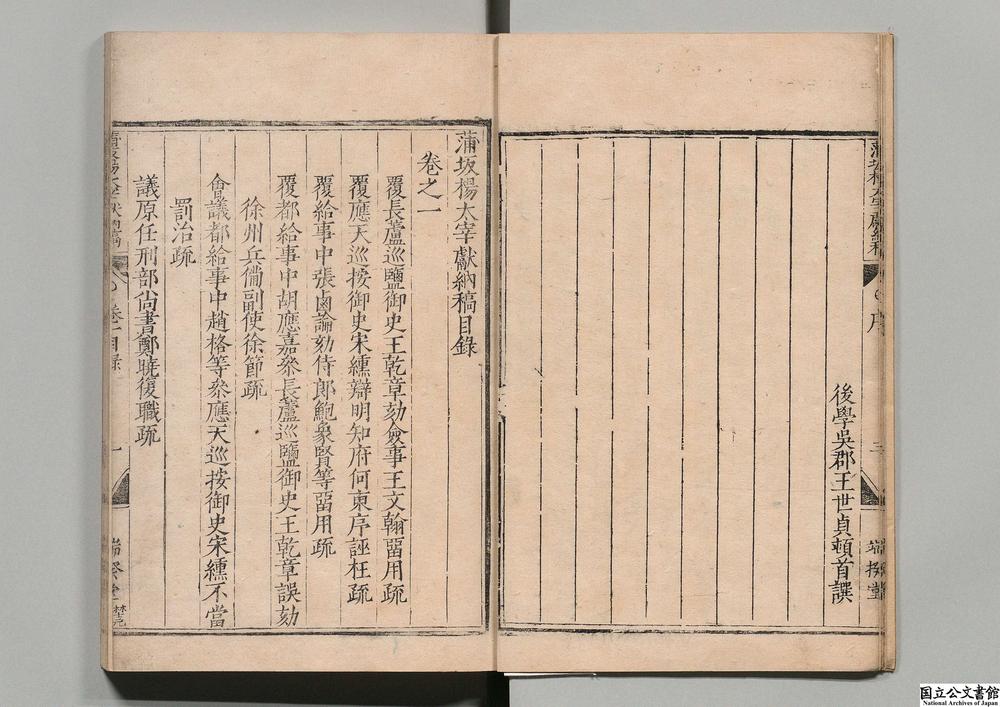 後學吳郡王世貞頓首譔
蒲坂楊太宰獻納稿目錄
卷之一
覆長蘆巡鹽御史王乾章劾僉事王文翰畱用疏
覆應天巡按御史宋纁辯明知府何東序誣枉疏
覆給事中張鹵論劾侍郎鮑象賢等畱用疏
覆都給事中胡應嘉叅長蘆巡鹽御史王乾章誤劾
徐州兵備副使徐節疏
會議都給事中趙格等叅應天巡按御史宋纁不當
罰治疏
議原任刑部尚書鄭曉復職疏
卷一目錄
一
序
国立公文書館
National Archives of Japan